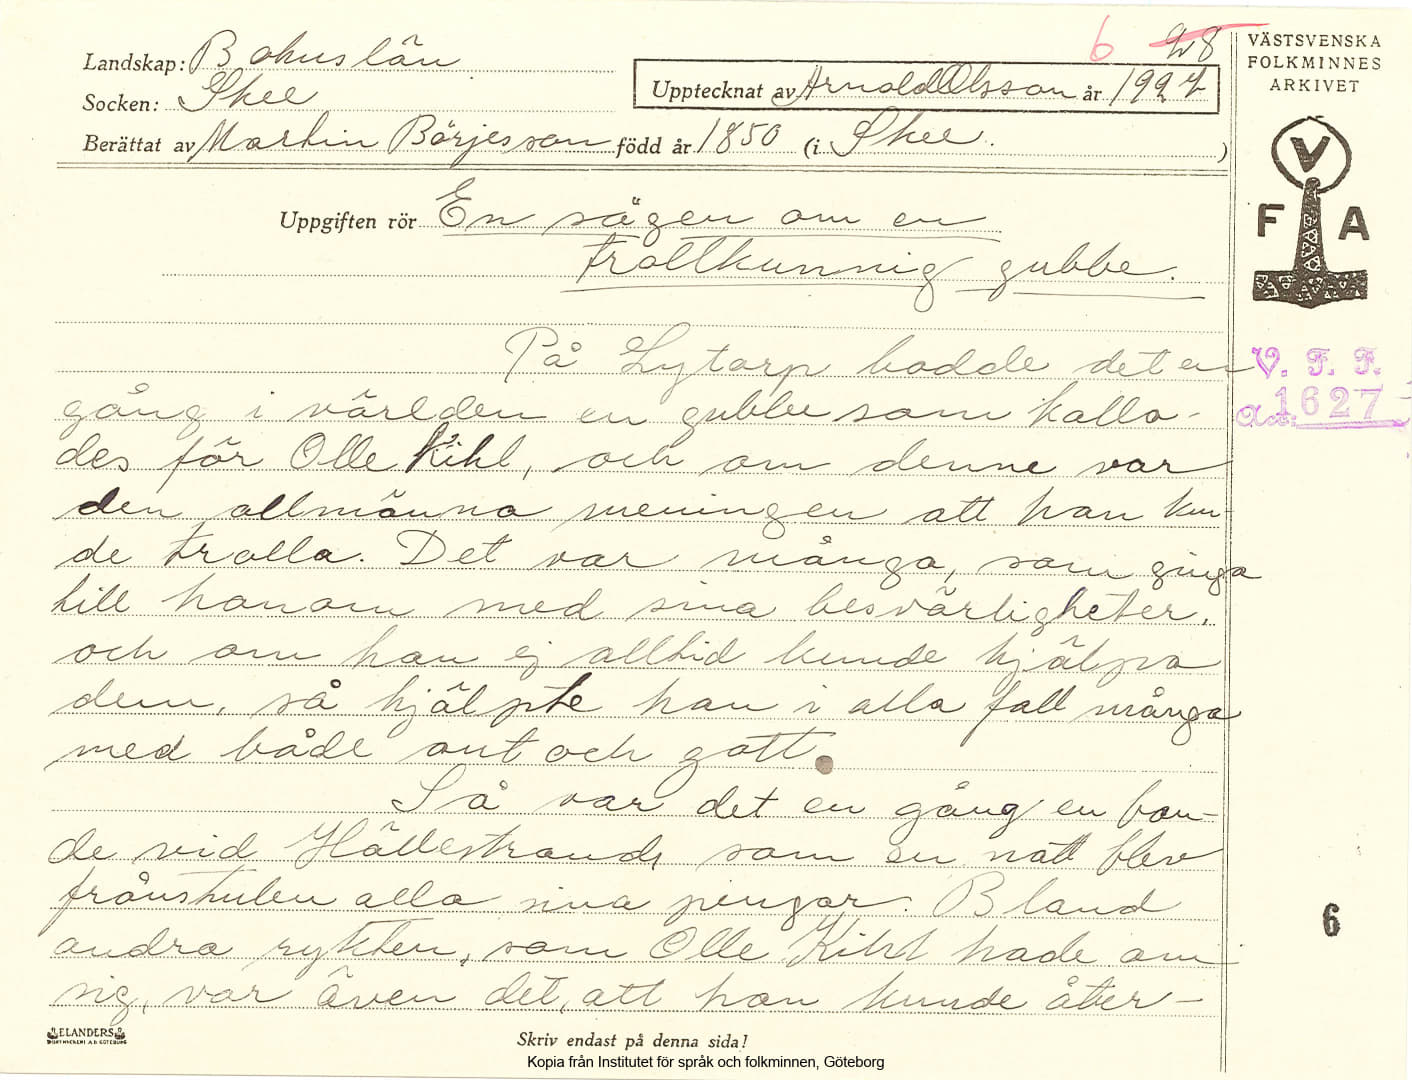 6 28
VÄSTSVENSKA
FOLKMINNES
ARKIVET
Landskap: Bohuslän
Upptecknat av Arnold Olsson år 1927
Socken: Skee
Berättat av Martin Börjesson född år 1850 (i Skee.)
V
F A
Uppgiften rör En sägen om en
trollkunnig gubbe.
På Lytorp bodde det en
V. F. F.
gång i världen en gubbe som kalla-
Acc: 1627
des för Olle Kihl, och om denne var
den allmänna meningen att han kun-
de trolla. Det var många, som gingo
till honom med sina besvärligheter,
och om han ej alltid kunde hjälpa
dem, så hjälpte han i alla fall många
med både ont och gott.
Så var det en gång en bon-
de vid Hällestrand, som en natt blev
frånstulen alla sina pengar. Bland
andra rykten, som Olle Kihl hade om
6
sig, var även det, att han kunde åter-
ELANDERS
BOKTRYCKERI A.B. GÖTEBORG
Skriv endast på denna sida!
Kopia från Institutet för språk och folkminnen, Göteborg